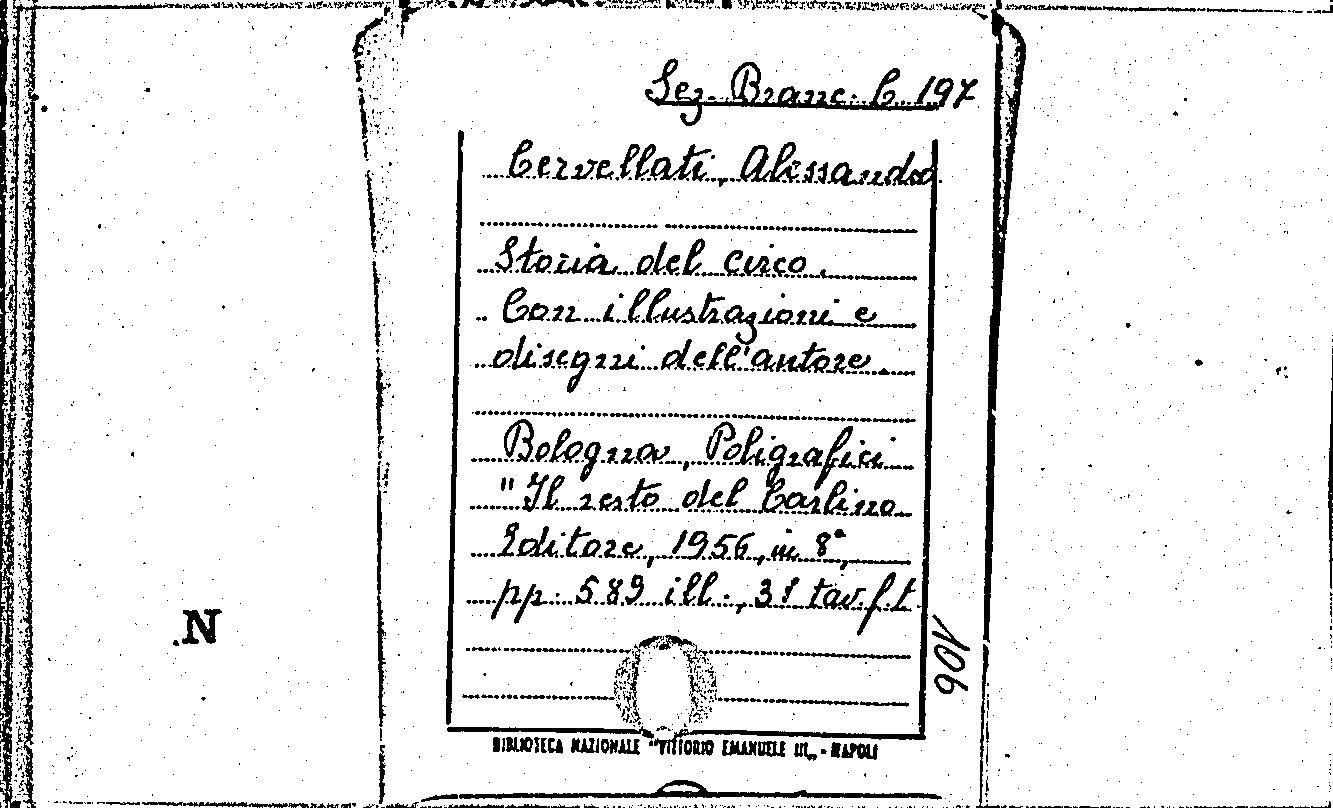 Sez. Branc. C. 197
Cervellati, Alessandro
Storia del circo.
Con illustrazioni e
disegni dell'autore.
Bologna, Poligrafici
"Il resto del Carlino
Editore, 1956, in 8°,
pp. 589 ill., 31 tav. f. t.
106
N
BIBLIOTECA NAZIONALE "VITTORIO EMANUELE III„ - NAPOLI